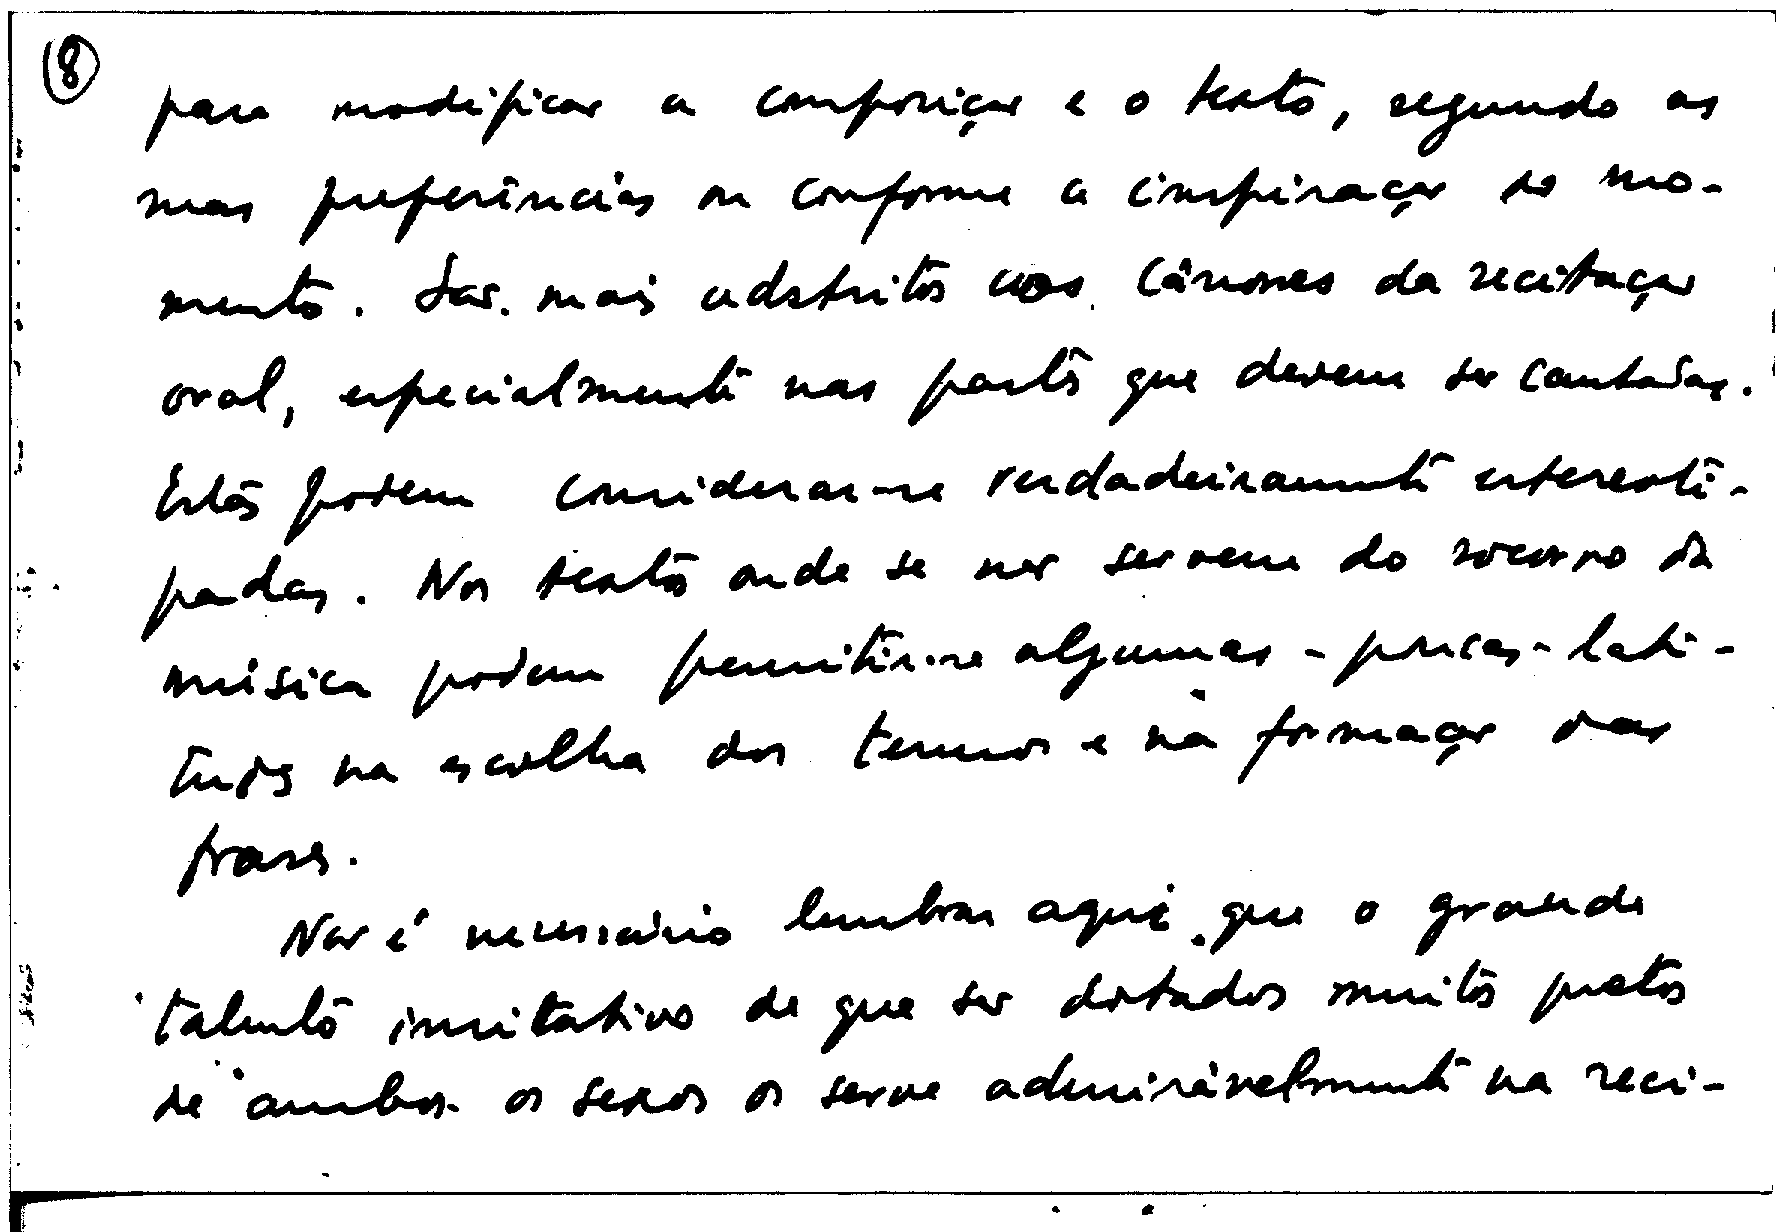 8
para modificar a composição e o texto, segundo as
suas preferências ou conforme a inspiração do mo-
mento. São mais adstritos aos cânones da recitação
oral, especialmente nas partes que devem ser cantadas.
Estas podem considerar-se verdadeiramente estereoti-
padas. Nos textos onde se não servem do socorro da
música podem permitir-se algumas - poucas - lati-
tudes na escolha dos termos e na formação das
frases.
Não é necessário lembrar aqui que o grande
talento imitativo de que são dotados muitos pretos
de ambos os sexos os serve admiràvelmente na reci-